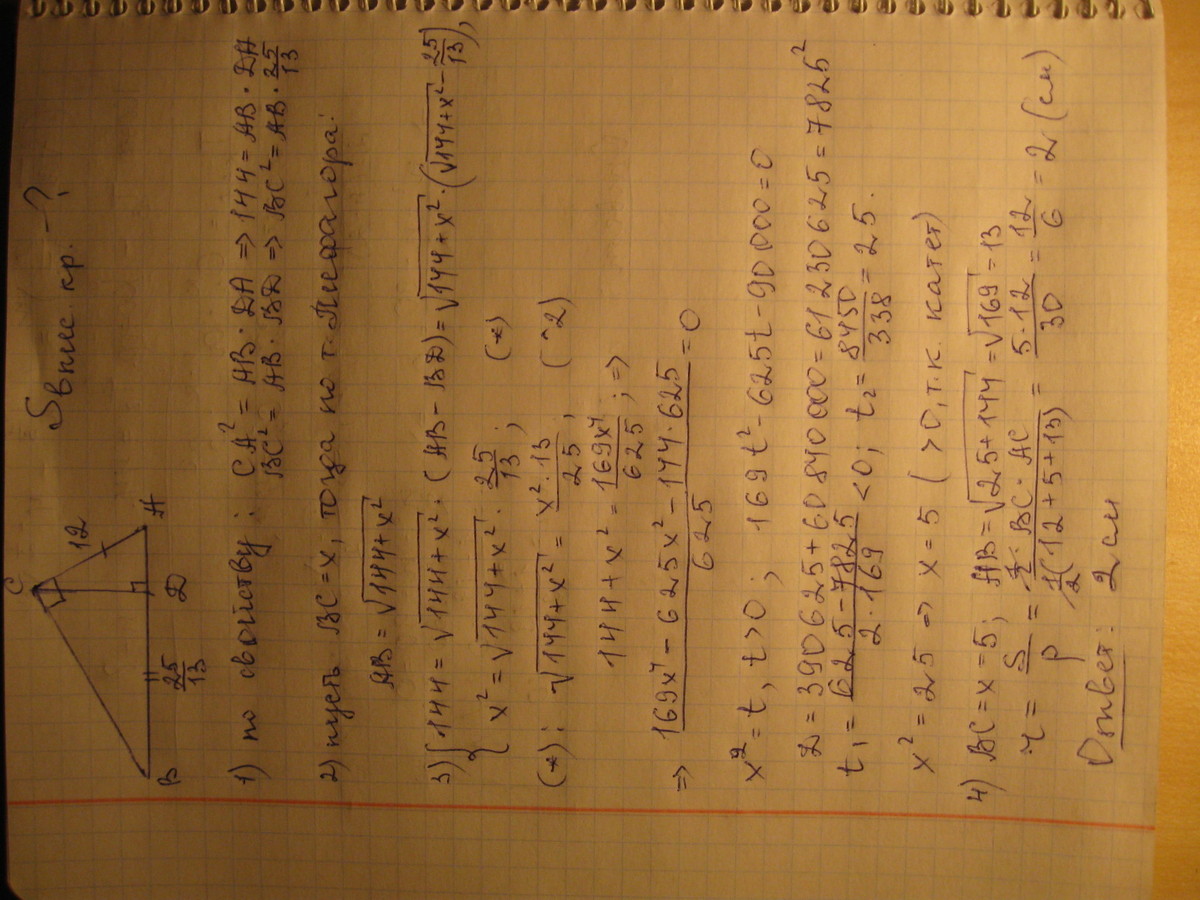 Sвпис. кр. - ?
C
12
B
25/13
D
A
1) по свойству: CA² = AB · DA => 144 = AB · DA
BC² = AB · BD => BC² = AB · 25/13
2) пусть BC = x, тогда по т. Пифагора:
AB = √(144+x²)
3) { 144 = √(144+x²) · (AB − BD) = √(144+x²) · (√(144+x²) − 25/13),
x² = √(144+x²) · 25/13; (*)
(*): √(144+x²) = x²·13/25, (^2)
144 + x² = 169x⁴/625; =>
=> (169x⁴ − 625x² − 144·625)/625 = 0
x² = t, t>0; 169t² − 625t − 90000 = 0
D = 390625 + 60840000 = 61230625 = 7825²
t₁ = (625 − 7825)/(2·169) < 0; t₂ = 8450/338 = 25.
x² = 25 => x = 5 (>0, т.к. катет)
4) BC = x = 5; AB = √(25+144) = √169 = 13
r = S/p = (½ · BC · AC)/(½(12+5+13)) = 5·12/30 = 12/6 = 2 (см)
Ответ: 2 см